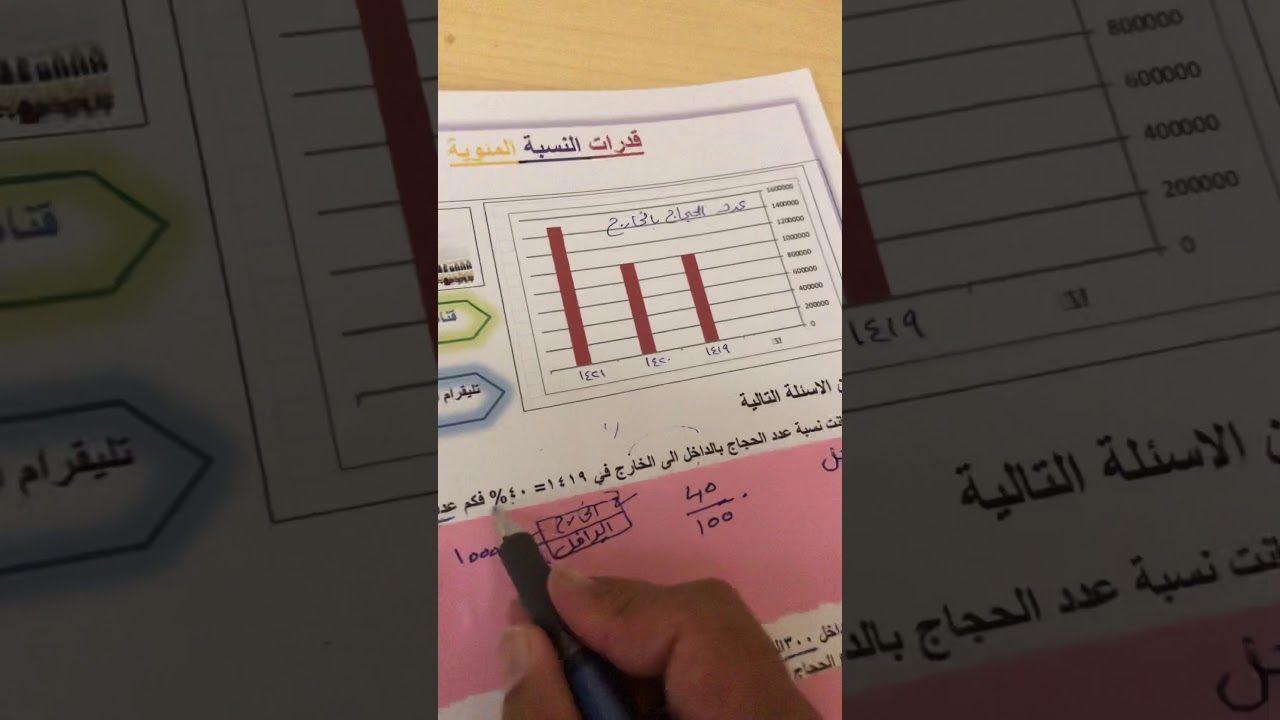 قدرات النسبة المئوية
عدد الحجاج بالخارج
1600000
1400000
1200000
1000000
800000
600000
400000
200000
0
١٤١٩
١٤٢٠
١٤٢١
قنا
تليقرام
ن الاسئلة التالية
انت نسبة عدد الحجاج بالداخل الى الخارج في ١٤١٩=٤٠% فكم عدد
40
100
الخارج
الداخل
1000
اخل ٣٠٠ ال
الحجاج
800000
600000
400000
200000
0
١٤١٩
قناة
تليقرام
ن الاسئلة التالية
انت نسبة عدد الحجاج بالدا